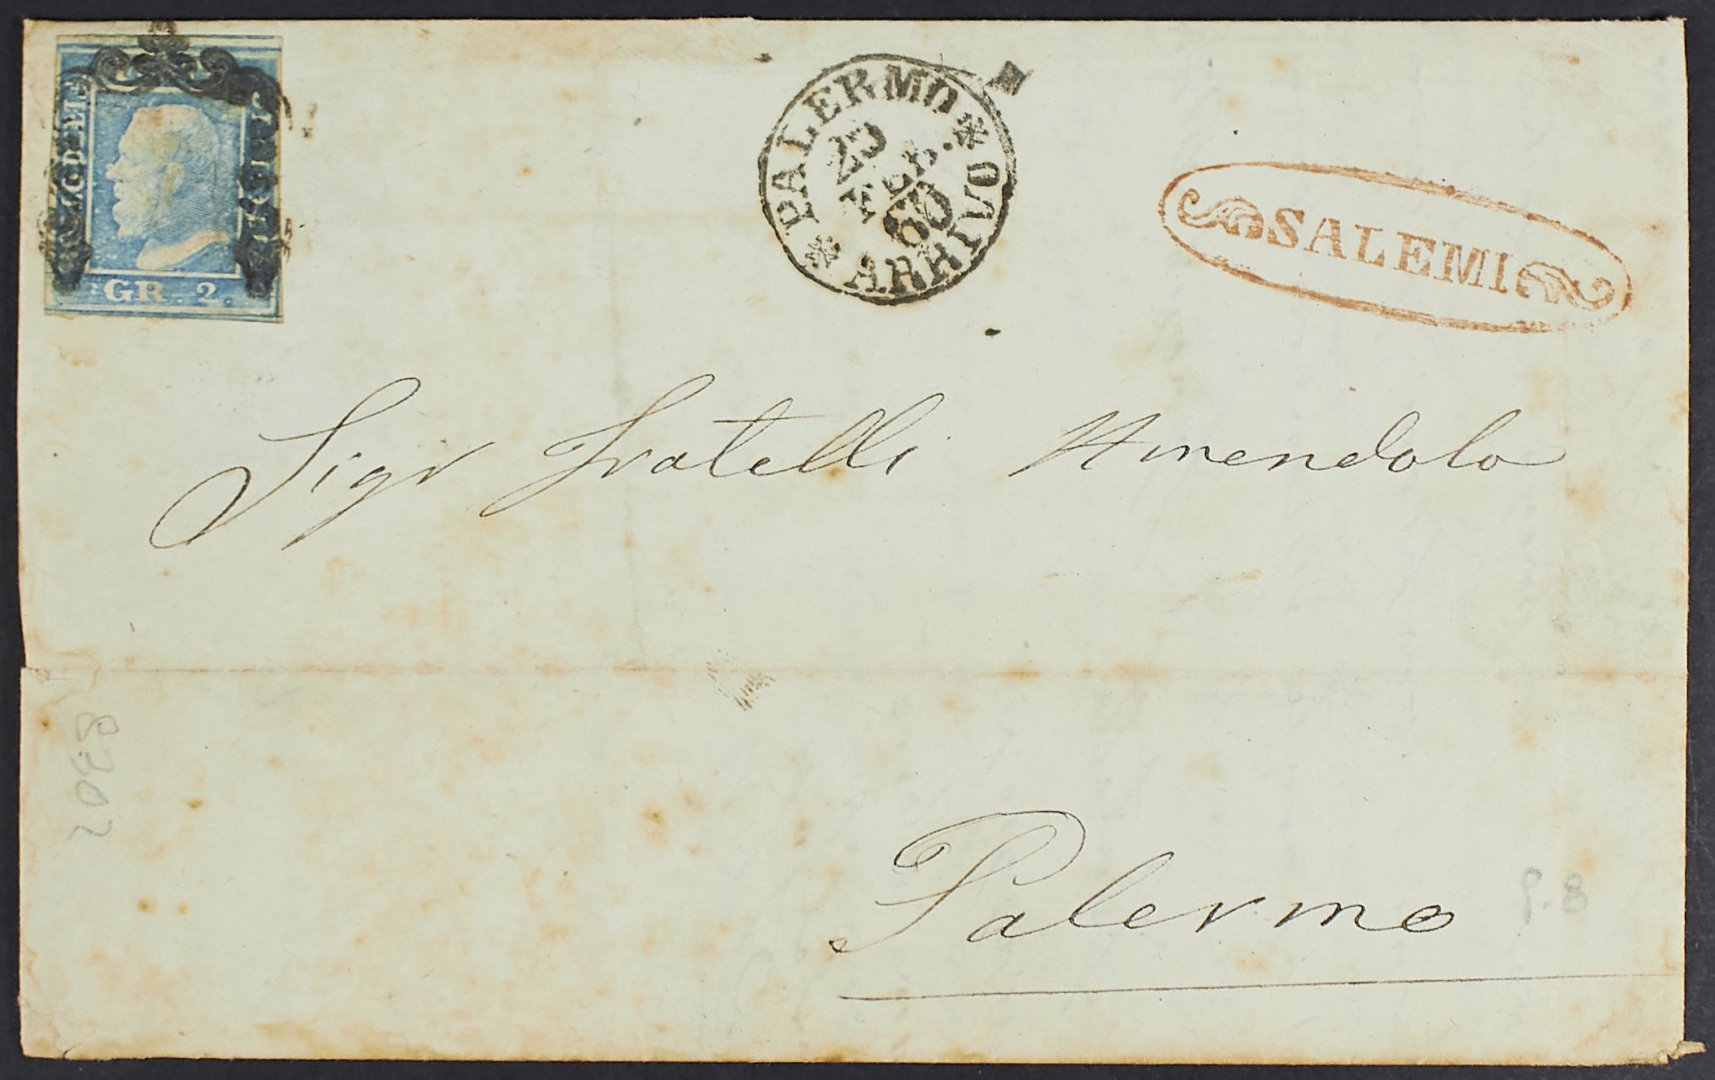 BOLLO DELLA
SICILIA
GR. 2.
PALERMO
ARRIVO
FEB.
60
SALEMI
Sigr Fratelli Amendola
Palermo
P.8